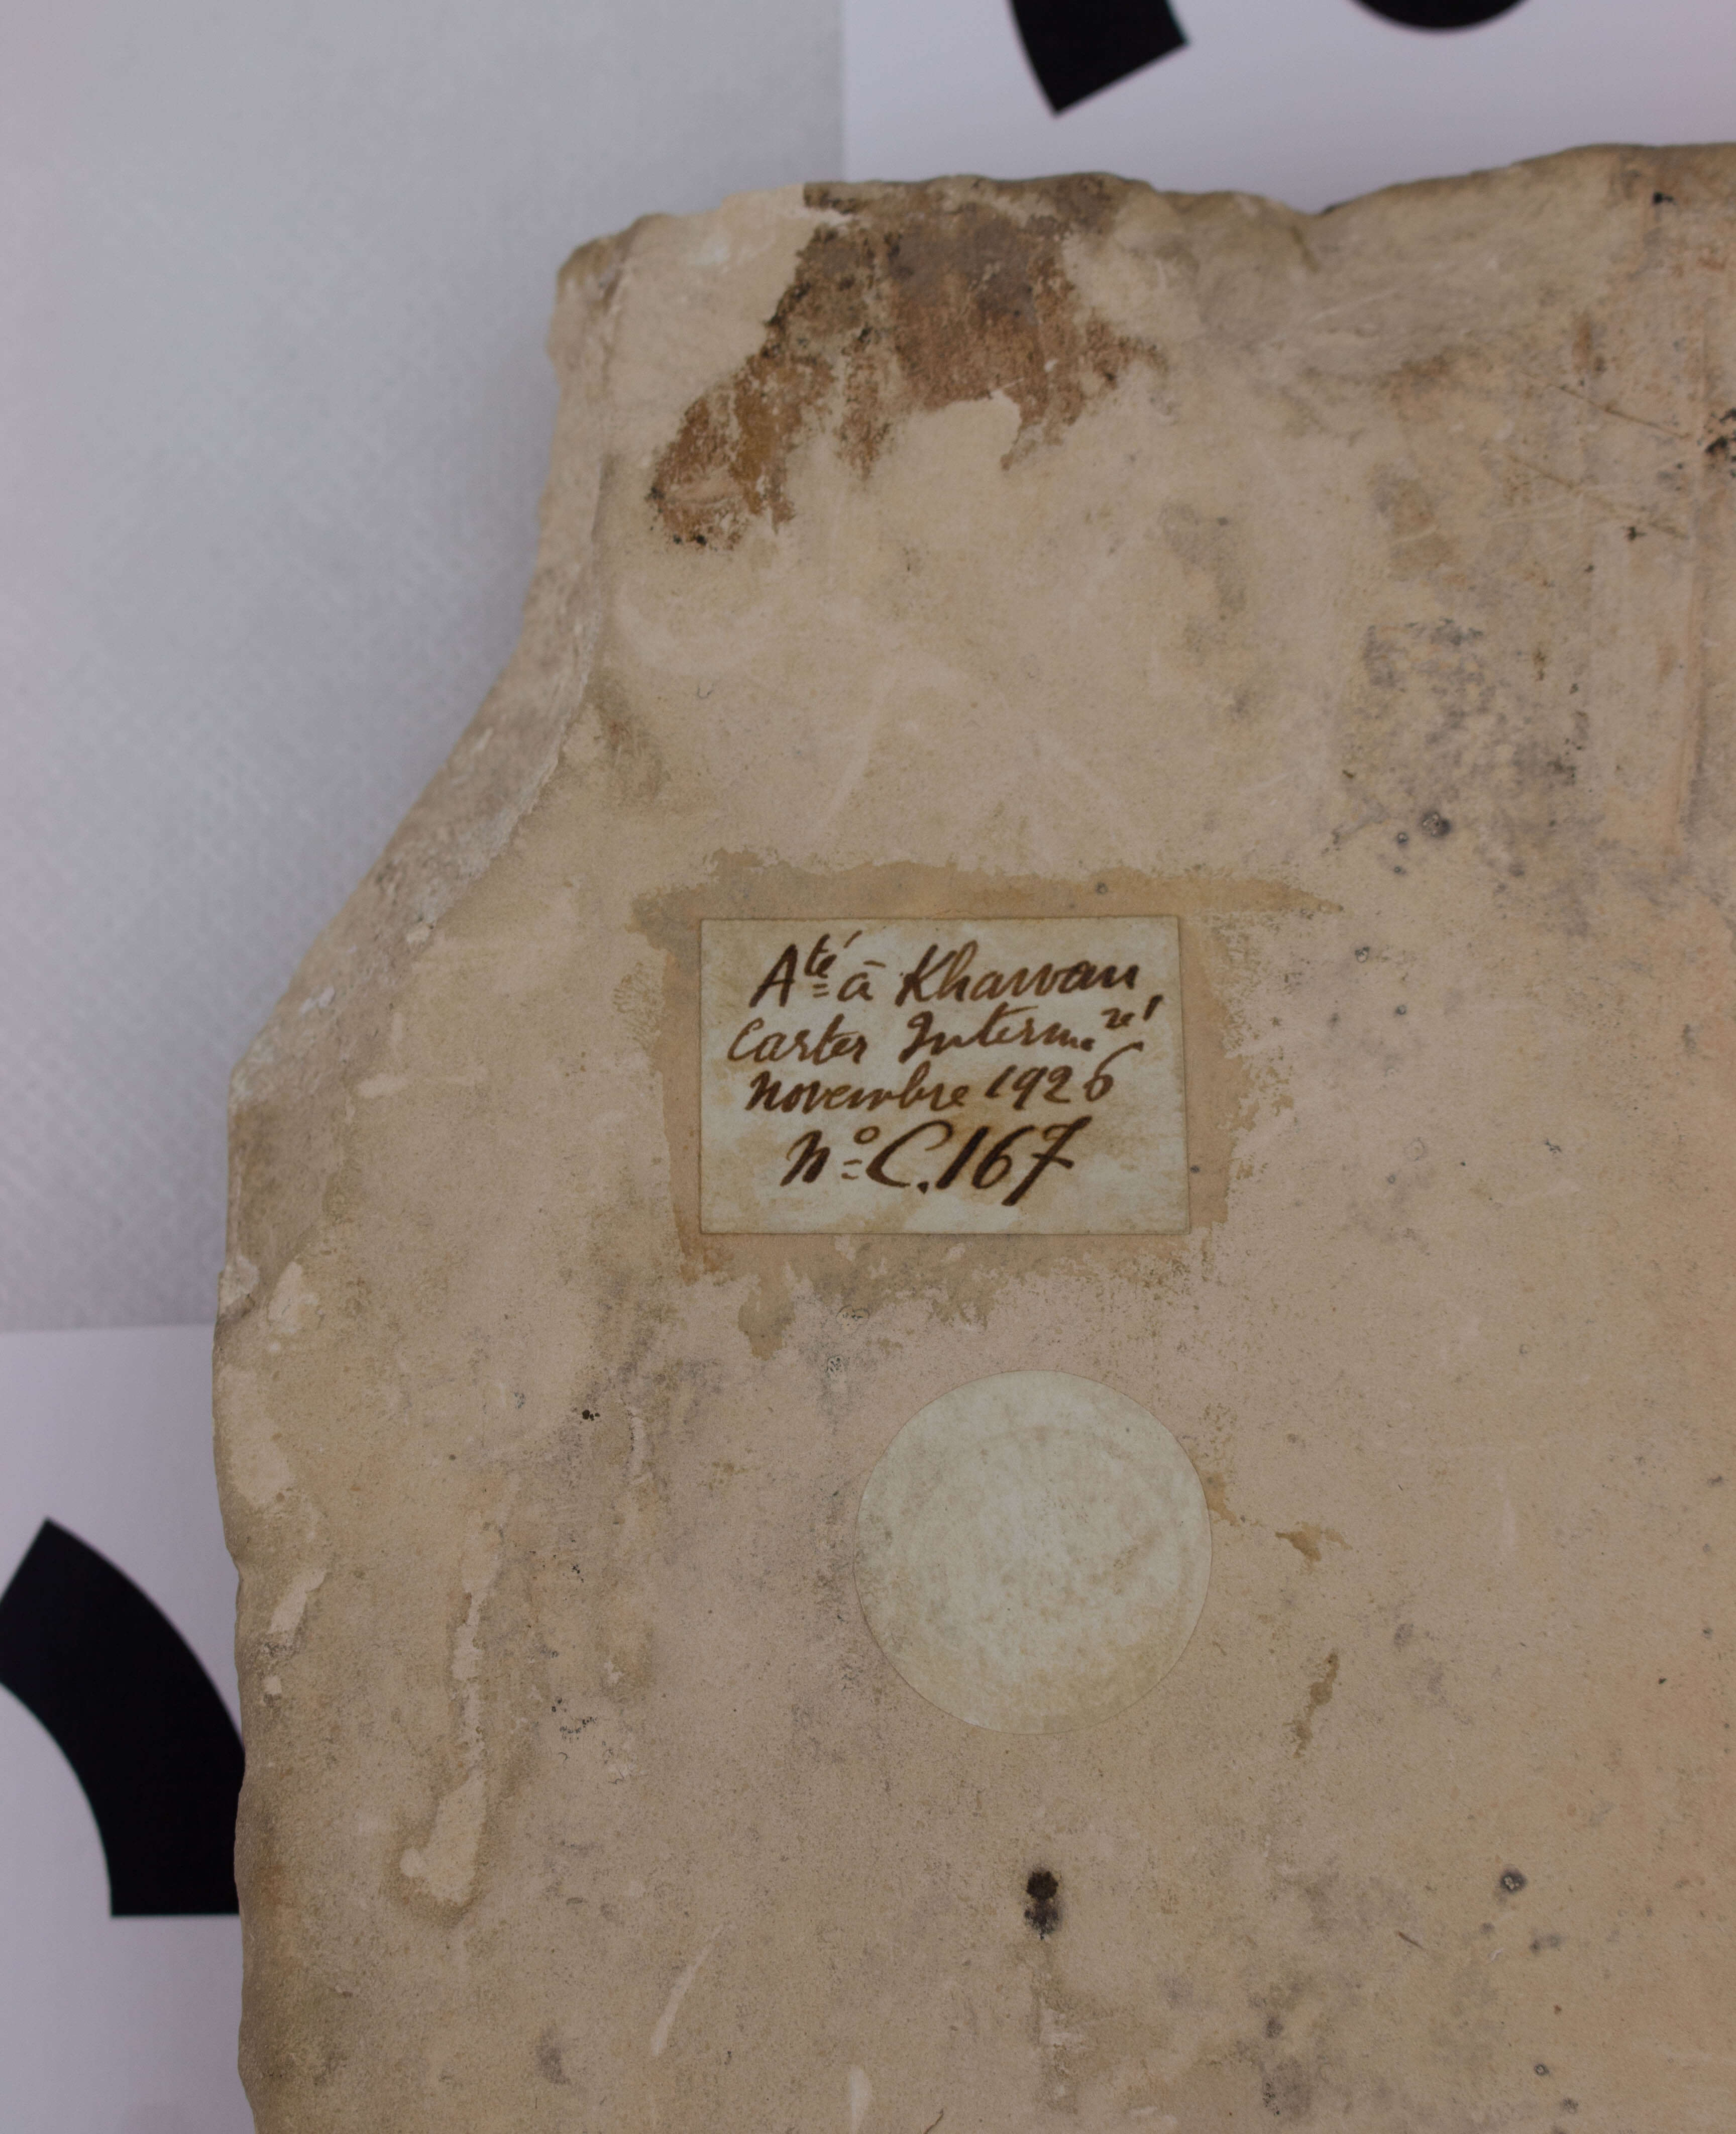 Até à Khawan
Carter Interm.re
Novembre 1926
No C.167